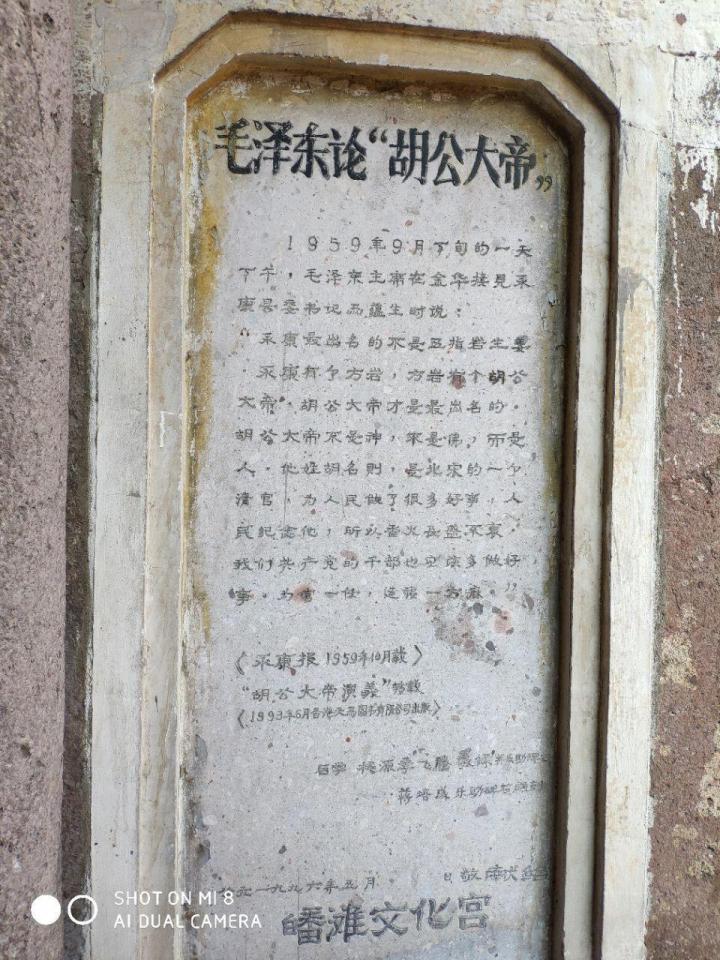 毛泽东论“胡公大帝”
1959年9月下旬的一天
下午，毛泽东主席在金华接见永
康县委书记马蕴生时说：
“永康最出名的不是五指岩生姜
．永康有个方岩，方岩有个胡公
大帝．胡公大帝才是最出名的．
胡公大帝不是神，不是佛，而是
人．他姓胡名则，是北宋的一个
清官，为人民做了很多好事，人
民纪念他，所以香火长盛不衰．
我们共产党的干部也应该多做好
事．为官一任，造福一方嘛．”
《永康报1959年10月载》
“胡公大帝演义”转载
《1993年6月香港天马图书有限公司出版》
李飞腾
蒋培成乐助碑石
一九九六年五月
皤滩文化宫
SHOT ON MI 8
AI DUAL CAMERA